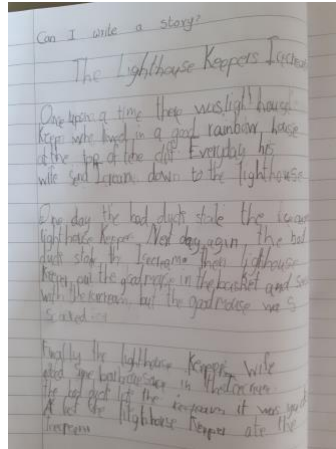 Can I write a story?
The Lighthouse Keepers Icecream
One upon a time there was light house
Keeper who lived in a good rainbow house
at the top of the clif. Everyday his
wife send Icream down to the lighthouse
One day the bad ducks stole the
lighthouse Keeper, Next day again, the bad
ducks stole the Then lighthouse
Keeper put the good mouse in the basket and
with the icecream, but the good mouse was
Finally the lighthouse Keeper wife
some in the
the bad duck it was
At last the lighthouse Keeper ate the
Icecream